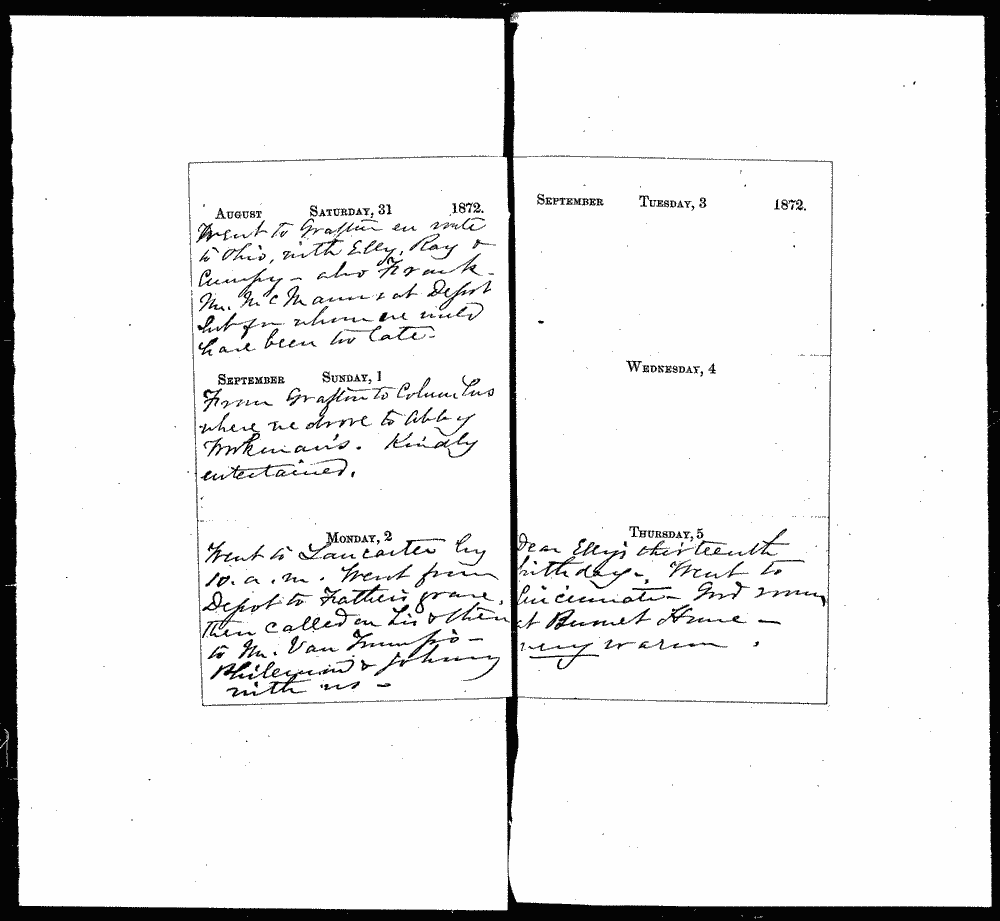 AUGUST SATURDAY, 31 1872.
Went to Grafton en route
to Ohio, with Elly, Ray &
Cumpy – also Frank –
Mr. McManus at Depot
but for whom we would
have been too late –
SEPTEMBER SUNDAY, 1
From Grafton to Columbus
where we drove to Abby
Kindly
entertained.
MONDAY, 2
Went to Lancaster by
10. a. m. Went from
Depot to Father's grave,
then called on Liz & then
to Mr. Van Trump's –
Philemon & Johnny
with us –
SEPTEMBER TUESDAY, 3 1872.
WEDNESDAY, 4
THURSDAY, 5
Dear Elly's thirteenth
birthday –. Went to
Cincinnati – Good rooms
at Burnet House –
very warm .